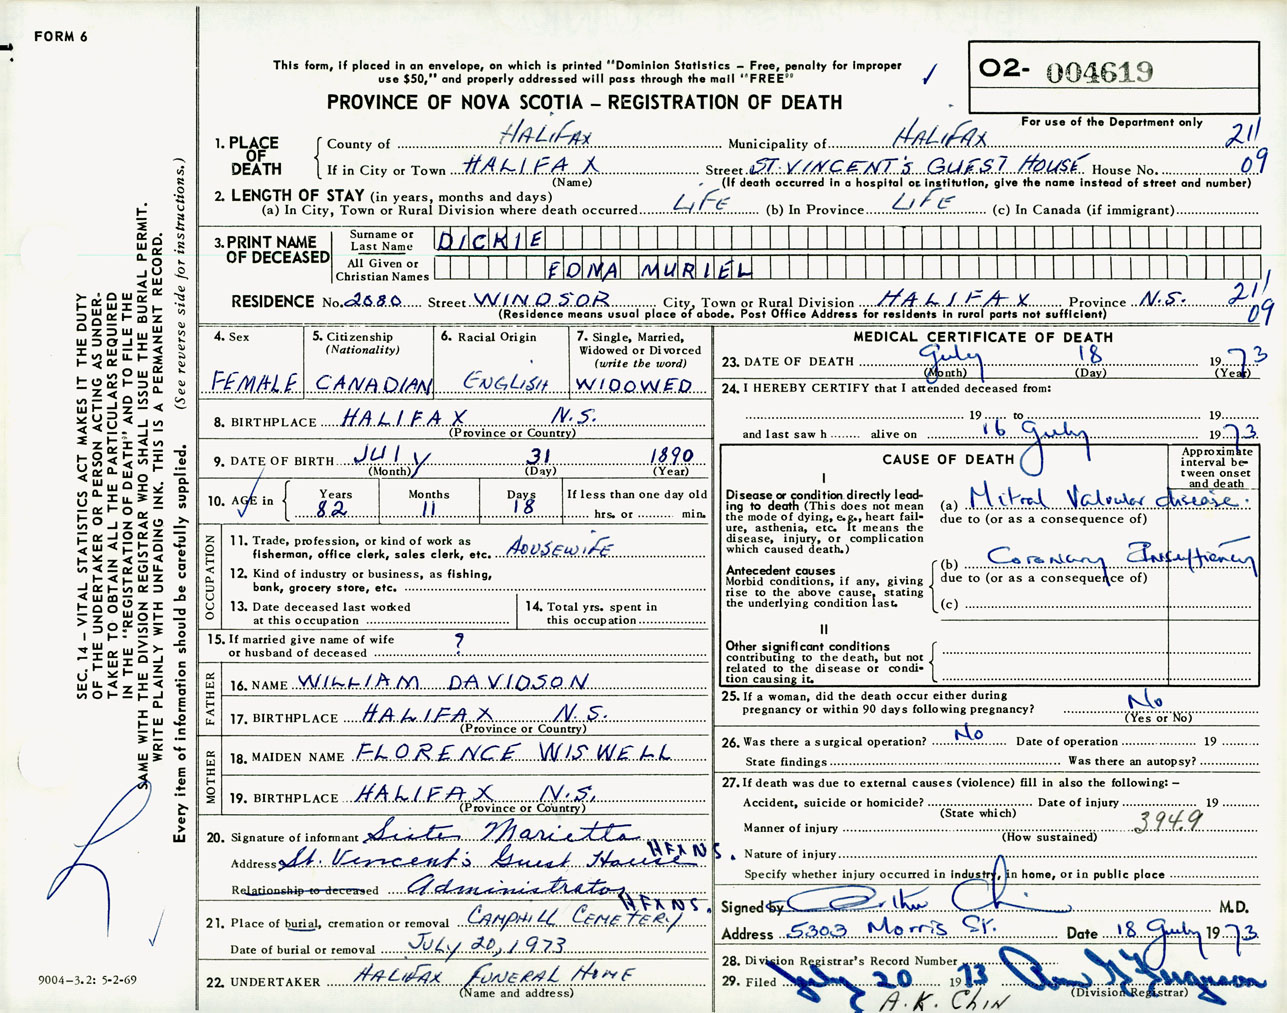 FORM 6
This form, if placed in an envelope, on which is printed "Dominion Statistics – Free, penalty for improper
use $50," and properly addressed will pass through the mail "FREE"
PROVINCE OF NOVA SCOTIA – REGISTRATION OF DEATH
02- 004619
For use of the Department only
SEC. 14 – VITAL STATISTICS ACT MAKES IT THE DUTY
OF THE UNDERTAKER OR PERSON ACTING AS UNDER-
TAKER TO OBTAIN ALL THE PARTICULARS REQUIRED
IN THE "REGISTRATION OF DEATH" AND TO FILE THE
SAME WITH THE DIVISION REGISTRAR WHO SHALL ISSUE THE BURIAL PERMIT.
WRITE PLAINLY WITH UNFADING INK. THIS IS A PERMANENT RECORD.
Every item of information should be carefully supplied. (See reverse side for instructions.)
1. PLACE OF DEATH
County of HALIFAX Municipality of HALIFAX 211
If in City or Town HALIFAX Street ST. VINCENT'S GUEST HOUSE House No. 09
(Name) (If death occurred in a hospital or institution, give the name instead of street and number)
2. LENGTH OF STAY (in years, months and days)
(a) In City, Town or Rural Division where death occurred LIFE (b) In Province LIFE (c) In Canada (if immigrant)
3. PRINT NAME OF DECEASED
Surname or Last Name DICKIE
All Given or Christian Names EDNA MURIEL
RESIDENCE No. 2080 Street WINDSOR City, Town or Rural Division HALIFAX Province N.S. 211
(Residence means usual place of abode. Post Office Address for residents in rural parts not sufficient) 09
4. Sex FEMALE
5. Citizenship (Nationality) CANADIAN
6. Racial Origin ENGLISH
7. Single, Married, Widowed or Divorced (write the word) WIDOWED
8. BIRTHPLACE HALIFAX N.S.
(Province or Country)
9. DATE OF BIRTH JULY 31 1890
(Month) (Day) (Year)
10. AGE in Years 82 Months 11 Days 18 If less than one day old hrs. or min.
OCCUPATION
11. Trade, profession, or kind of work as
fisherman, office clerk, sales clerk, etc. HOUSEWIFE
12. Kind of industry or business, as fishing,
bank, grocery store, etc.
13. Date deceased last worked
at this occupation
14. Total yrs. spent in
this occupation
15. If married give name of wife
or husband of deceased ?
FATHER
16. NAME WILLIAM DAVIDSON
17. BIRTHPLACE HALIFAX N.S.
(Province or Country)
MOTHER
18. MAIDEN NAME FLORENCE WISWELL
19. BIRTHPLACE HALIFAX N.S.
(Province or Country)
20. Signature of informant Sister Marietta
Address St. Vincent's Guest House HFXNS.
Relationship to deceased Administrator
21. Place of burial, cremation or removal CAMPHILL CEMETERY HFXNS.
Date of burial or removal JULY 20, 1973
22. UNDERTAKER HALIFAX FUNERAL HOME
(Name and address)
9004–3.2: 5-2-69
MEDICAL CERTIFICATE OF DEATH
23. DATE OF DEATH July 18 1973
(Month) (Day) (Year)
24. I HEREBY CERTIFY that I attended deceased from:
19 to 19
and last saw h alive on 16 July 1973
CAUSE OF DEATH
Approximate interval between onset and death
I
Disease or condition directly lead-
ing to death (This does not mean
the mode of dying, e.g., heart fail-
ure, asthenia, etc. It means the
disease, injury, or complication
which caused death.)
(a) Mitral Valvular disease.
due to (or as a consequence of)
Antecedent causes
Morbid conditions, if any, giving
rise to the above cause, stating
the underlying condition last.
(b) Coronary Insufficiency
due to (or as a consequence of)
(c)
II
Other significant conditions
contributing to the death, but not
related to the disease or condi-
tion causing it.
25. If a woman, did the death occur either during
pregnancy or within 90 days following pregnancy? No
(Yes or No)
26. Was there a surgical operation? No Date of operation 19
State findings Was there an autopsy?
27. If death was due to external causes (violence) fill in also the following: –
Accident, suicide or homicide? Date of injury 19
(State which)
Manner of injury 394.9
(How sustained)
Nature of injury
Specify whether injury occurred in industry, in home, or in public place
Signed by Arthur Chin M.D.
Address 5303 Morris St. Date 18 July 1973
28. Division Registrar's Record Number
29. Filed July 20 1973 Ferguson
(Division Registrar)
A.K. CHIN